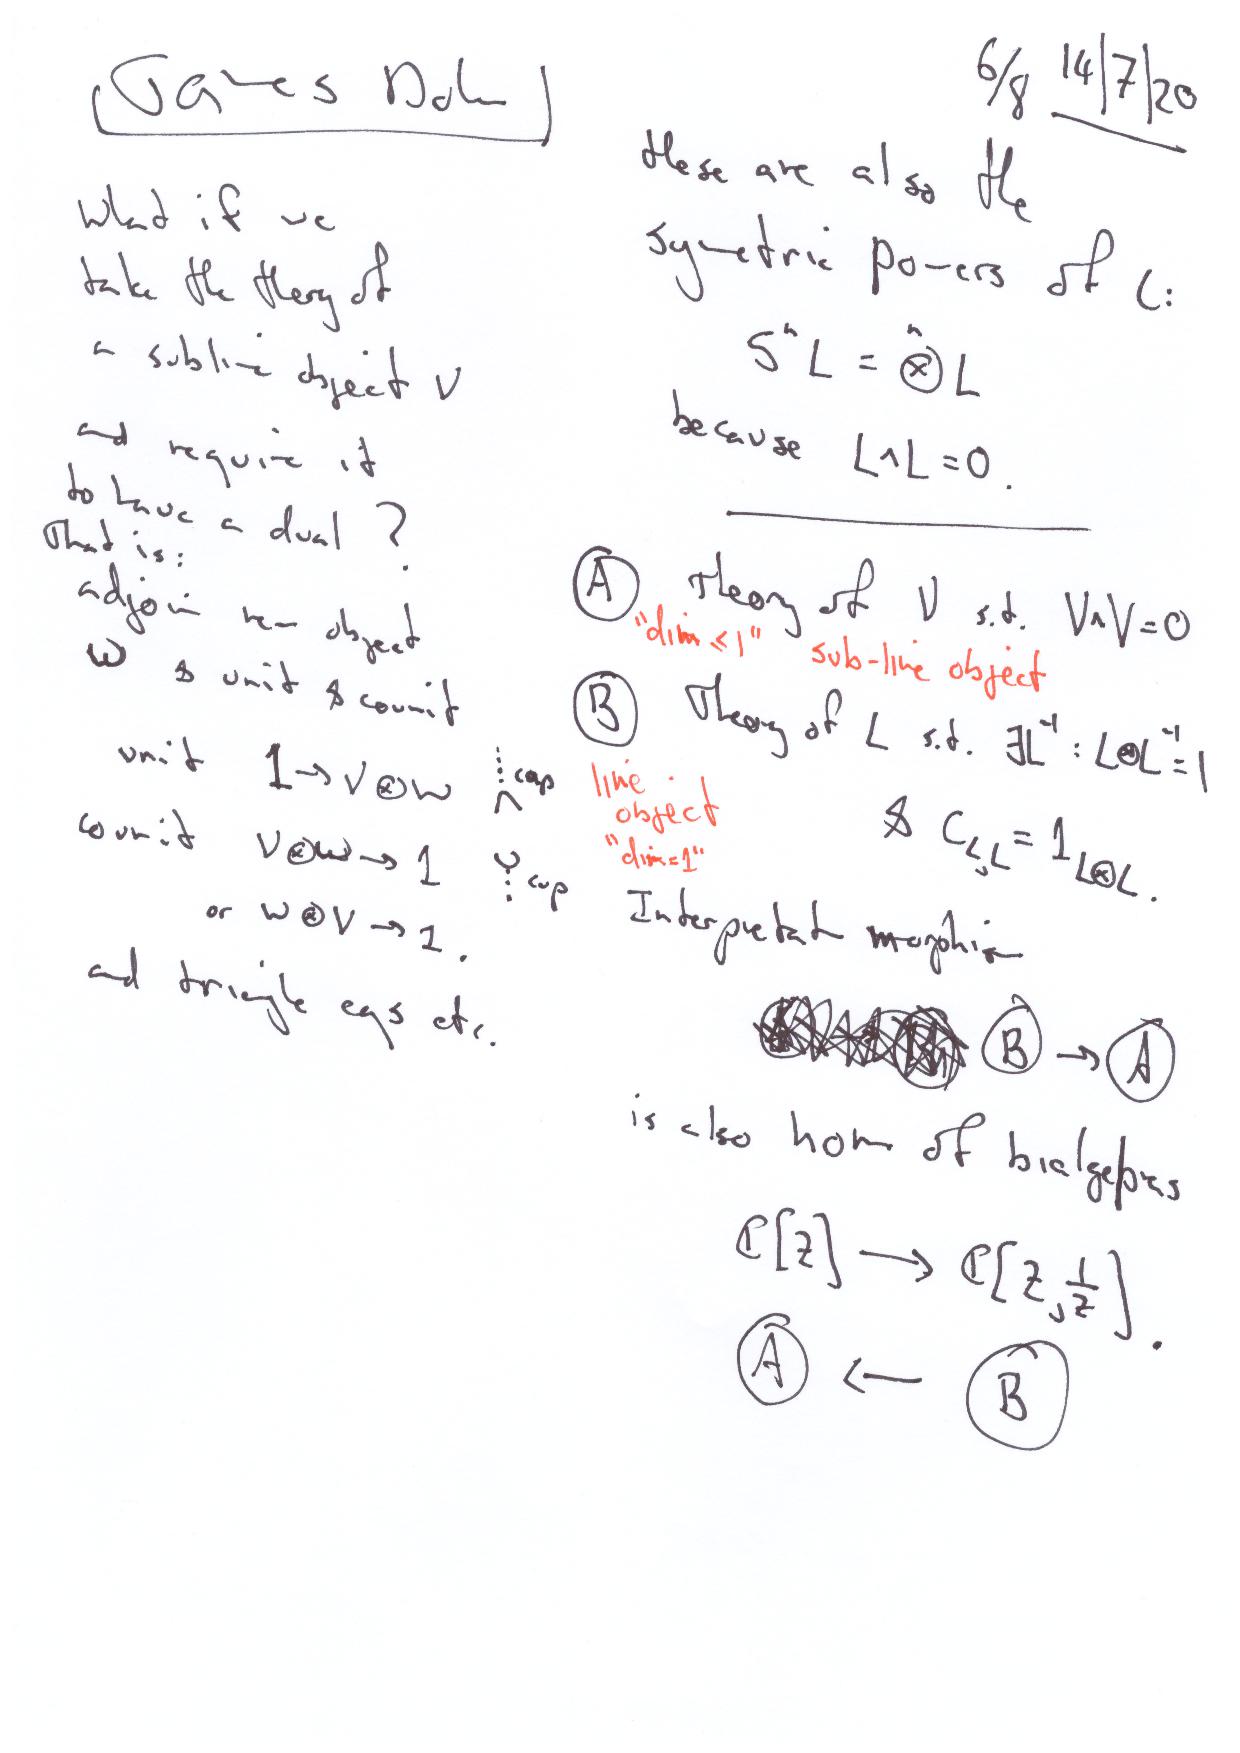 James Dol
6/8 14/7/20
What if we
take the theory of
a subline object V
and require it
to have a dual?
That is:
adjoin new object
W & unit & counit
unit 1→V⊗W cap
counit V⊗W→1 cup
or W⊗V→1.
and triangle eqs etc.
these are also the
symetric powers of L:
SⁿL = ⊗ⁿL
because L∧L=0.
A Theory of V s.t. V∧V=0
"dim≤1" sub-line object
B Theory of L s.t. ∃L⁻¹: L⊗L⁻¹=1
line object "dim=1"
& C_{L,L} = 1_{L⊗L}.
Interpretat morphism
B → A
is also hom of bialgebras
ℂ[z] → ℂ[z, 1/z].
A ← B